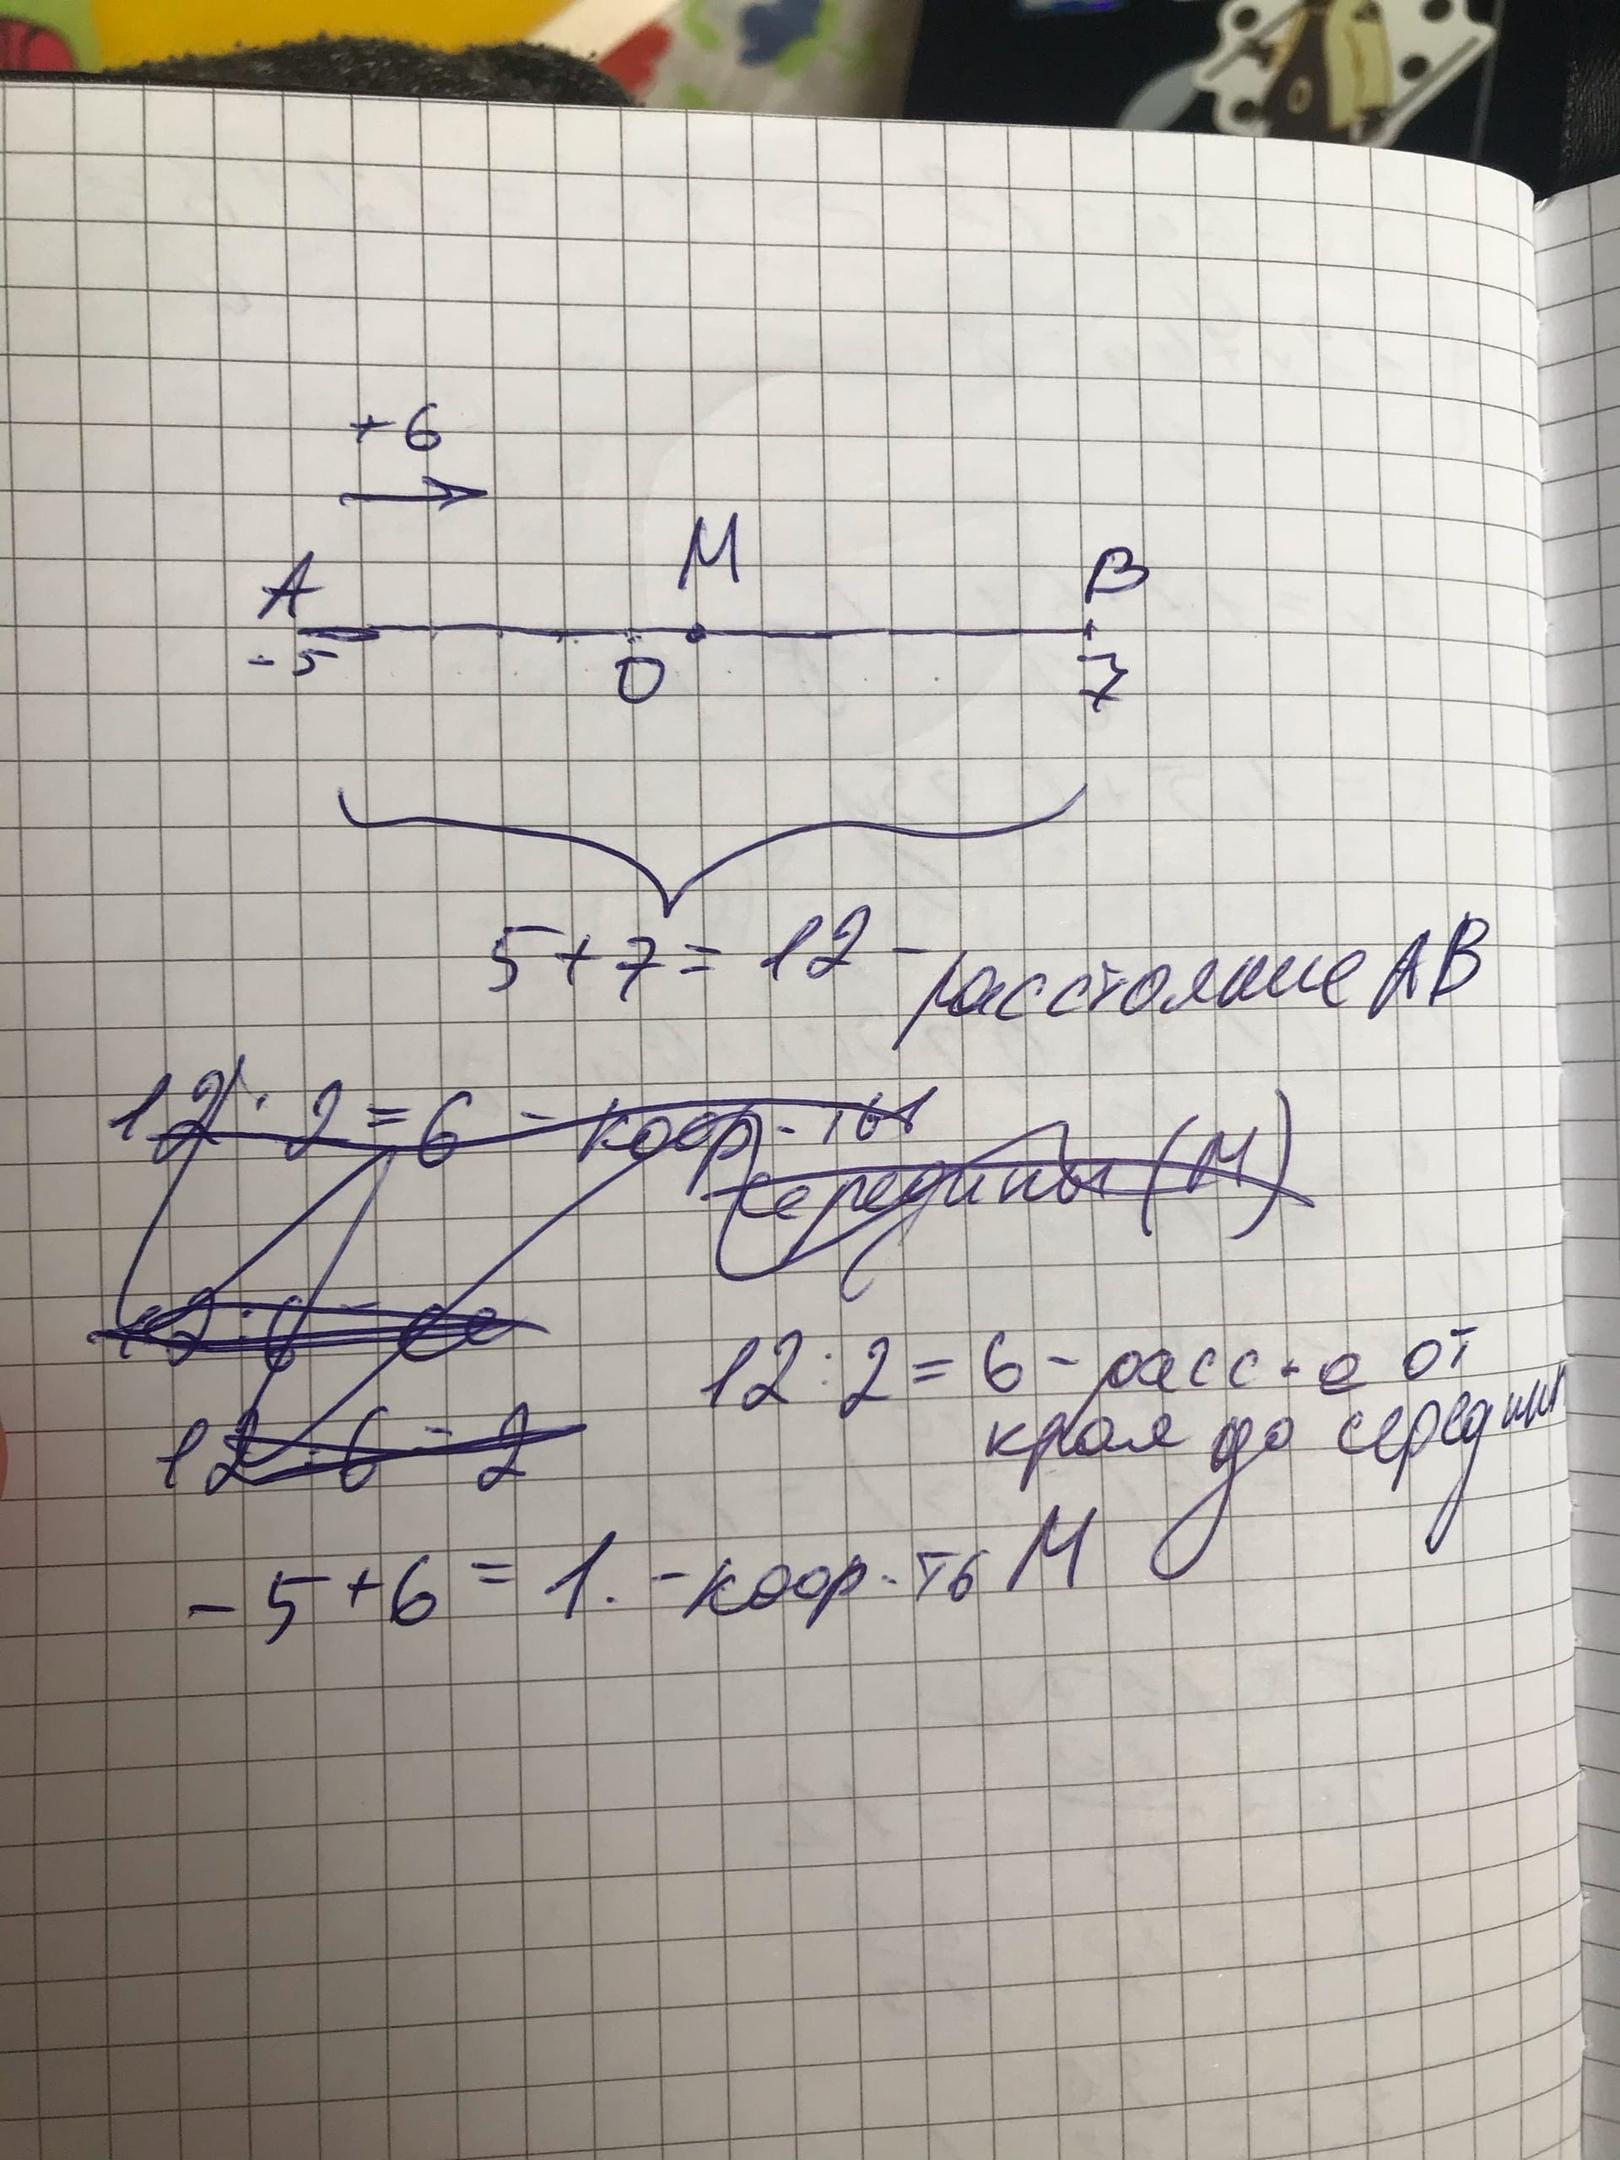 +6
A M B
-5 0 7
5+7=12 - расстояние AB
12:2=6 - коор-ты
середины (M)
12:2=6 - расс-е от
края до середины
12:6=2
-5+6=1. - коор-ть M